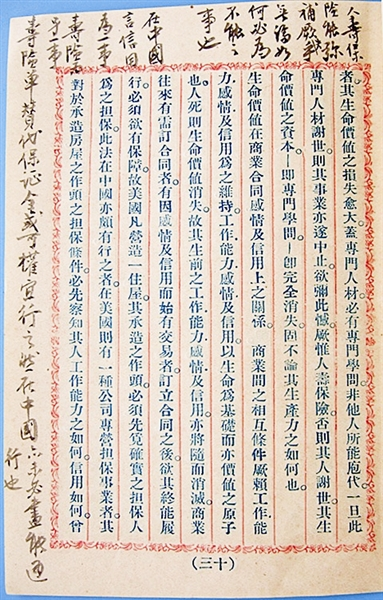 人壽保
險能弥
何必為
不能之
事也
在中國
者。其生命價值之損失愈大。蓋專門人材。必有專門學問。非他人所能庖代。一旦此
專門人材謝世。則其事業亦遂中止。欲彌此憾。厥惟人壽保險。否則其人謝世。其生
命價值之資本—即專門學問—卽完全消失。固不論其生產力之如何也。
生命價值在商業合同感情及信用上之關係 商業間之相互條件。厥賴工作能
力。感情及信用爲之維持。工作能力。感情及信用。以生命爲基礎。而亦價值之原子
也。人死則生命價值消失。故其生前之工作能力感情及信用。亦將隨而消滅。商業
往來有需訂合同者。有因感情及信用而始有交易者。訂立合同之後。欲其終能履
行。必須欲有保障。故美國凡營造一住屋。其承造之作頭。必須先覓確實之担保人
爲之担保。此法在中國亦頗有行之者。在美國則有一種公司。專營担保事業者。其
對於承造房屋之作頭之担保條件。必先察知其人工作能力之如何。信用如何。曾
壽險單替代保证金或可權宜行之然在中國亦未必盡能通
行也
(十三)